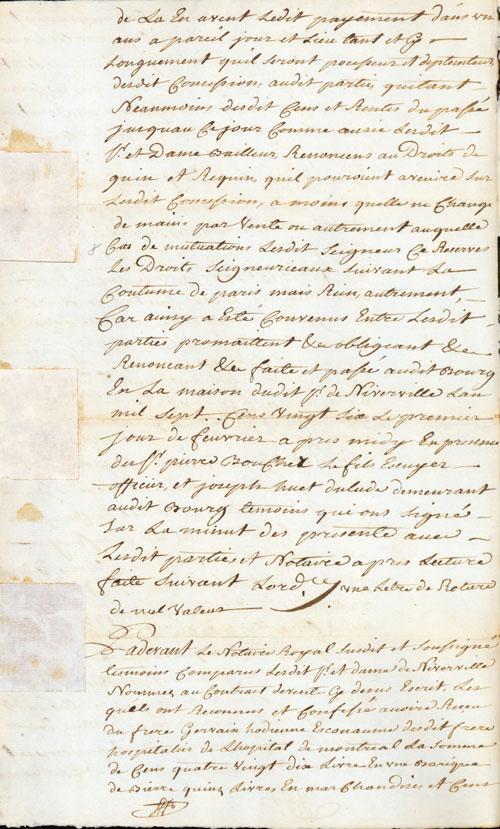 de La En avent Ledit payement dans un
ans a pareil jour et Lieu tant et Cy
Longuement quil seront posesseur et deptenteur
desdit Concession, audit parties quitant
Neanmoins desdit Cens et Rentes du passé
jusquau Ce jour Comme ausie Lesdit
Sr. et Dame Bailleur, Renoncens au Droits de
quin et Requin, quil pouroient avenire sur
Lesdit Concession, a moins quelle ne Change
de mains par Vente ou autrement auquelle
Cas de mutuations Lesdit Seigneur Ce Reserves
Les Droits Seigneuriceaux Suivant La
Coutume de paris mais Rien, autrement,
Car ainsy a Esté Convenus Entre Lesdit
parties promaittent &c obligeant &c
Renoncant &c faite et passé audit Bourg
En La maison dudit Sr. de Niverville Lan
mil Sept Cens Vingt Six Le premier
jour de feuvrier apres midy En presence
du Sr. pierre Boucher Le fils Escuyer
officier, et joseph huet dulude demeurant
audit Bourg temoins qui ont signé
Sur La minut des presente avec
Lesdit partie, et Notaire apres Lecture
faite Suivant Lord.ce une Letre de Roture
de nul Valeur
Padevant Le Notaire Royal Susdit et Soussigne
temoins Comparus Lesdit Sr. et dame de Niverville
Nommez au Contrast devent Cy denus Escrit, Les
quels ont Reconnus et Confesse avoire Receu
du frere Gervain hodienne Esconaume desdit frere
hospitalies de Lhopital de montreal La Somme
de Cens quatre Vingt dix Livre En une Barique
de Bierre quinz Livres En marchandises et Cens